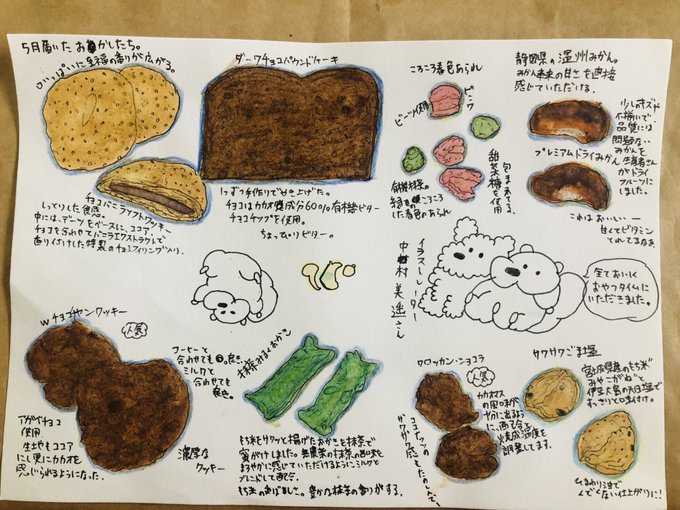 5月届いたおかしたち。
口いっぱいに
香りが広がる。
チョコバニラソフトクッキー
しっとりした食感。
中には、デーツをベースに、ココア、
チョコを合わせてバニラエクストラクトで
香り付けした特製のチョコフィリング入り。
ダークチョコパウンドケーキ
1つずつ手作りでやき上げた。
チョコはカカオ質成分60%有機ビター
チョコチップを使用。
ちょっぴりビター。
ころころ春色あられ
ピンク
ビーツ使用
甜菜糖を使用
有機抹茶。
ころころ
した春色のあられ
静岡県の温州みかん。
みかん本来の甘さを直接
感じていただける。
少しのキズや
不揃いで
品質には
問題ない
みかんを
生産者さん
がドライ
フルーツに
しました。
プレミアムドライみかん
これはおいしいー
甘くてビタミン
とれてるなぁ
イラストレーター
中村美遥さん
全ておいしく
おやつタイムに
いただきました。
Wチョコチャンクッキー
人気
アガベチョコ
使用
生地もココア
にし更にカカオを
感じられるようになった。
濃厚な
クッキー
コーヒーと
合わせても良し。
ミルクと
合わせても
良し。
抹茶みるくおかき
もち米をサクッと揚げたおかきを抹茶で
蜜がけしました。無農薬の抹茶の西味を
まろやかに感じていただけるようにミルクと
ブレンドして西合。
もち米の香ばしさ。豊かな抹茶の香りがする。
クロッカン・ショコラ
人気
カカオマス
の風味が
十分に出るよう
に、配合と
焼成温度を
調整してます。
ココナッツの
ザクザク感もたのしんで〜
サクサクごま塩
宮城県産のもち米"
みやこがね"と
伊豆大島の天日塩で
すっきりと味付け。
ひまわり油で
くどくない仕上がりに!